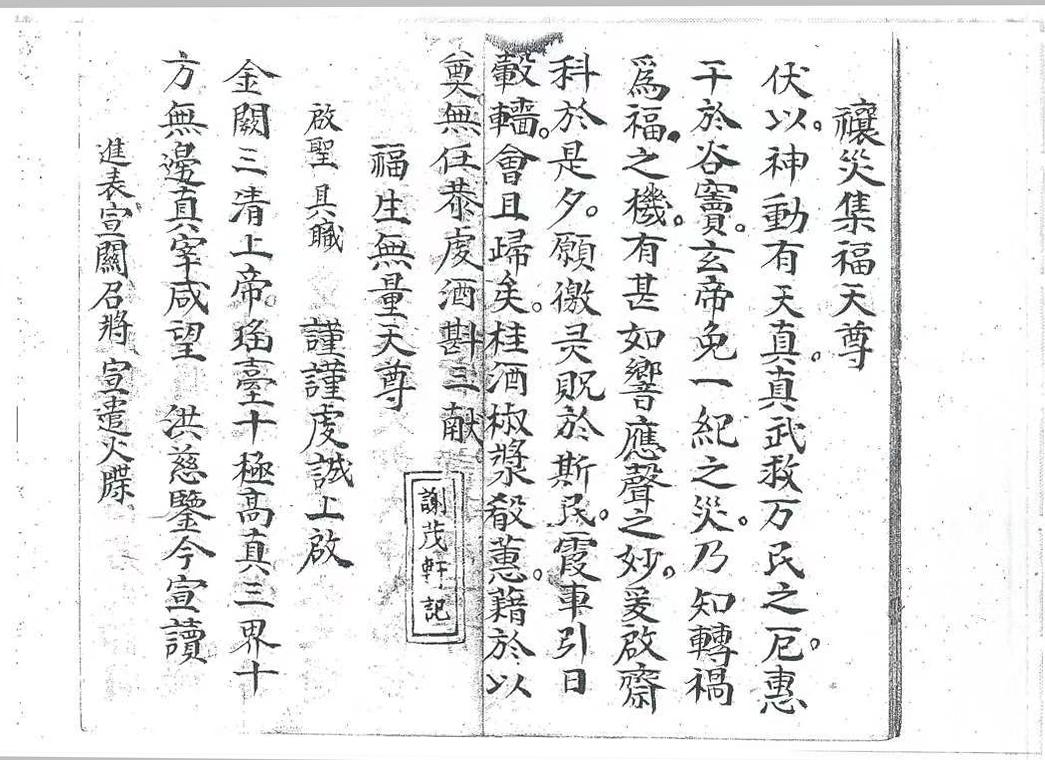 禳災集福天尊
伏以。神動有天真。真武救万民之厄。惠
干於谷竇。玄帝免一紀之災。乃知轉禍
爲福。之機。有甚如響應聲之妙。爰啟齋
科於是夕。願徼灵貺於斯民。霞車引日
轂轖。會且歸矣。桂酒椒漿殽蕙。藉於以
奠。無任恭虔酒斟三献
福生無量天尊
謝茂軒記
啟聖具職 謹謹虔誠上啟
金闕三清上帝。瑤臺十極高真三界十
方無邊真宰咸望 洪慈鑒今宣讀
進表宣關召將 宣遣火牒